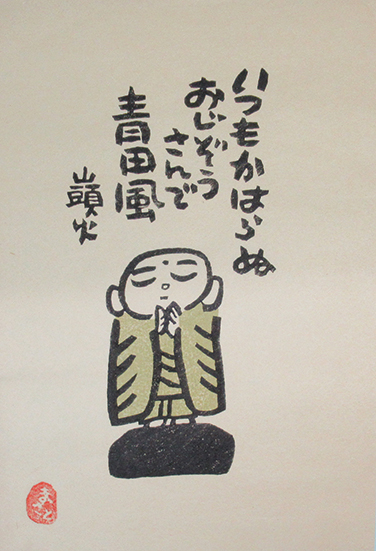 いつもかはらぬ
おじぞう
さんで
青田風
山頭火